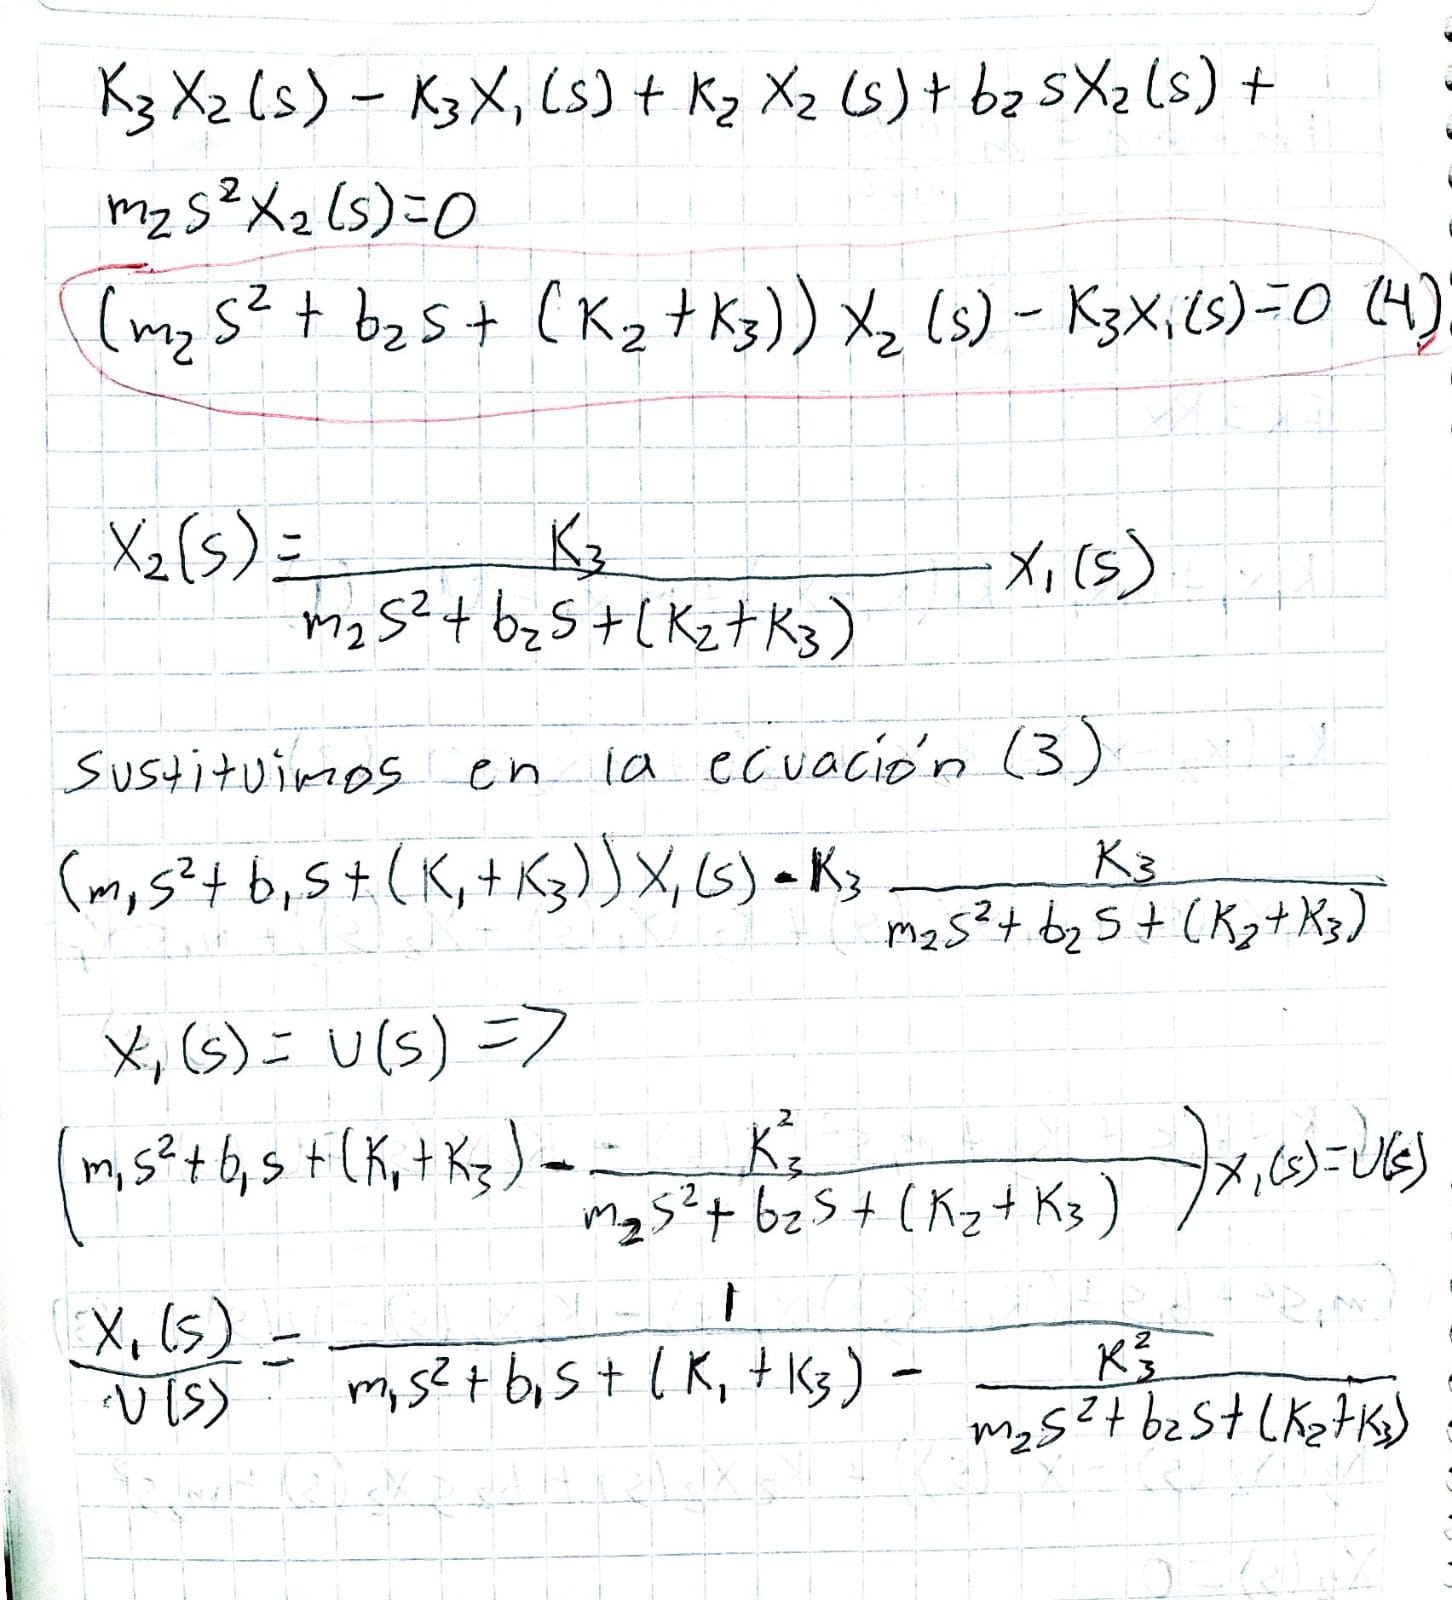 K₃X₂(s) - K₃X₁(s) + K₂X₂(s) + b₂sX₂(s) +
m₂s²X₂(s)=0
(m₂s² + b₂s + (K₂+K₃))X₂(s) - K₃X₁(s)=0 (4)
X₂(s) = K₃ / (m₂s² + b₂s + (K₂+K₃)) X₁(s)
Sustituimos en la ecuación (3)
(m₁s² + b₁s + (K₁+K₃))X₁(s) - K₃ K₃ / (m₂s² + b₂s + (K₂+K₃))
X₁(s) = U(s) =>
(m₁s² + b₁s + (K₁+K₃) - K₃² / (m₂s² + b₂s + (K₂+K₃)))X₁(s)=U(s)
X₁(s)/U(s) = 1 / (m₁s² + b₁s + (K₁+K₃) - K₃² / (m₂s² + b₂s + (K₂+K₃)))